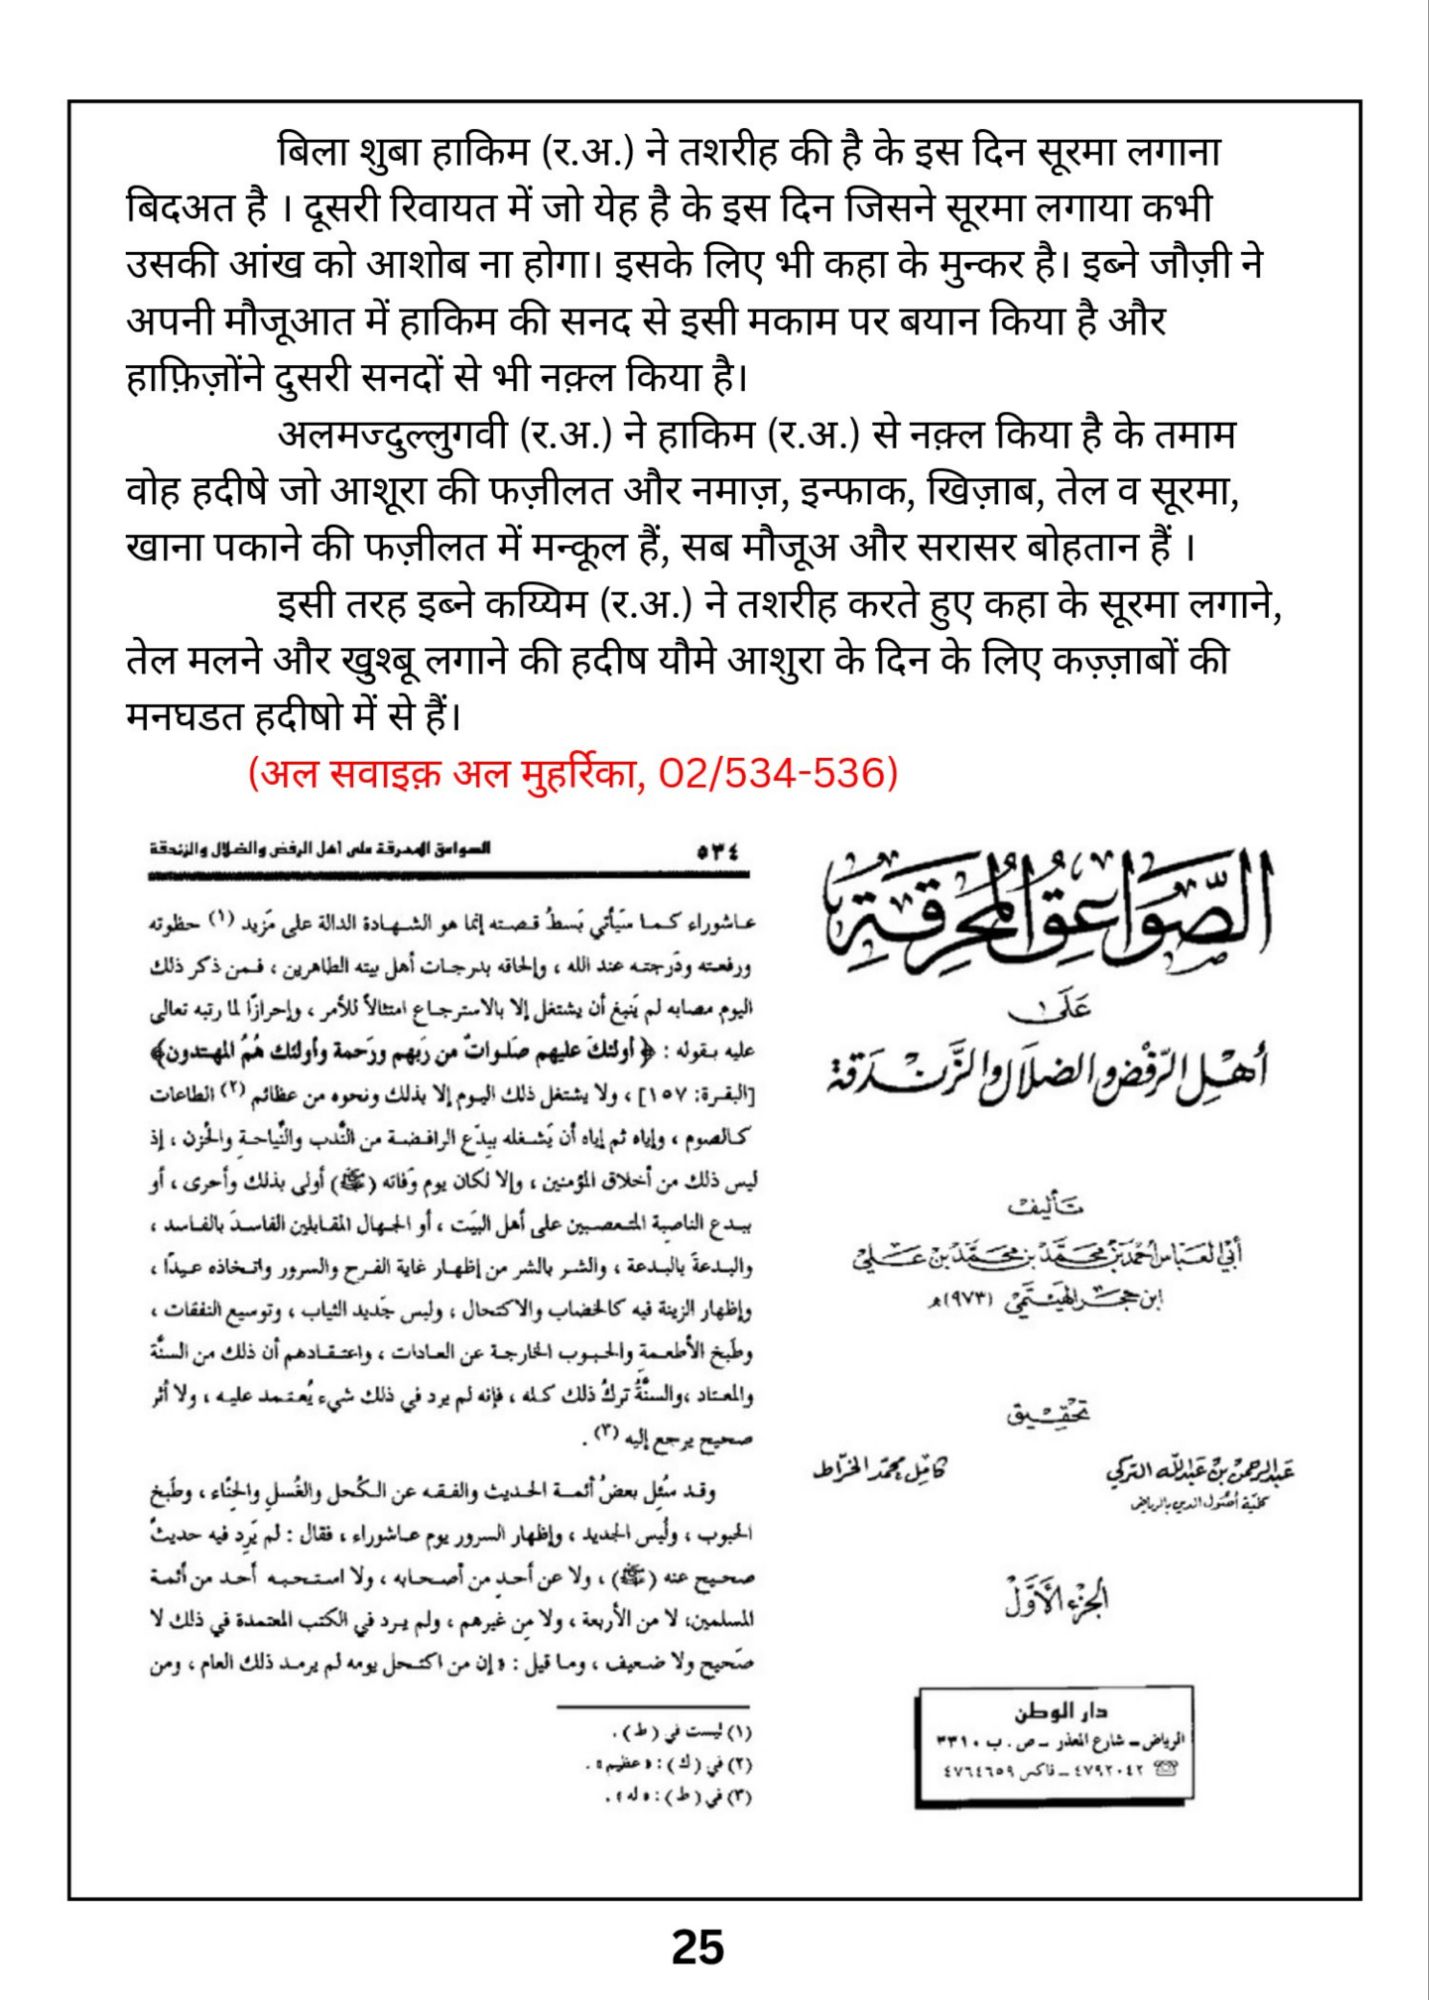 बिला शुबा हाकिम (र.अ.) ने तशरीह की है के इस दिन सूरमा लगाना
बिदअत है । दूसरी रिवायत में जो येह है के इस दिन जिसने सूरमा लगाया कभी
उसकी आंख को आशोब ना होगा। इसके लिए भी कहा के मुन्कर है। इब्ने जौज़ी ने
अपनी मौजूआत में हाकिम की सनद से इसी मकाम पर बयान किया है और
हाफ़िज़ोंने दुसरी सनदों से भी नक़्ल किया है।
अलमज्दुल्लुगवी (र.अ.) ने हाकिम (र.अ.) से नक़्ल किया है के तमाम
वोह हदीषे जो आशूरा की फज़ीलत और नमाज़, इन्फाक, खिज़ाब, तेल व सूरमा,
खाना पकाने की फज़ीलत में मन्कूल हैं, सब मौजूअ और सरासर बोहतान हैं ।
इसी तरह इब्ने कय्यिम (र.अ.) ने तशरीह करते हुए कहा के सूरमा लगाने,
तेल मलने और खुश्बू लगाने की हदीष यौमे आशुरा के दिन के लिए कज़्ज़ाबों की
मनघडत हदीषो में से हैं।
(अल सवाइक़ अल मुहर्रिका, 02/534-536)
الصَّوَاعِقُ المُحْرِقَة
عَلَى
أهْلِ الرَّفْضِ والضلَالِ والزَّنْدَقَة
تأليف
أبي العبَّاس أحمَد بن محمَّد بن محمَّد بن عَلي
ابن حجَر الهَيْتَمي (٩٧٣)هـ
تحقِيق
عَبدالرحمن بن عَبدالله التركي
كامِل محمّد الخرّاط
كليّة أصُول الدين بالرياض
الجزء الأوَّل
دار الوطن
الرياض ـ شارع المعذر ـ ص . ب ٣٣١٠
☏ ٤٧٩٢٠٤٢ ـ فاكس ٤٧٦٤٦٥٩
٥٣٤ الصواعق المحرقة على أهل الرفض والضلال والزندقة
عاشوراء كما سَيأتي بَسطُ قصته إنما هو الشهادة الدالة على مَزيد (١) حظوته
ورفعته ودَرجته عند الله ، وإلحاقه بدرجات أهل بيته الطاهرين ، فمن ذكر ذلك
اليوم مصابه لم يَنبغ أن يشتغل إلا بالاسترجاع امتثالاً للأمر ، وإحرازًا لما رتبه تعالى
عليه بقوله : ﴿ أولئكَ عليهم صَلَواتٌ من رَبهم ورَحمة وأولئك هُمُ المهتدون﴾
[البقرة: ١٥٧] ، ولا يشتغل ذلك اليوم إلا بذلك ونحوه من عظائم (٢) الطاعات
كالصوم ، وإياه ثم إياه أن يَشغله ببِدَع الرافضة من النَّدب والنِّياحة والحُزن ، إذ
ليس ذلك من أخلاق المؤمنين ، وإلا لكان يوم وَفاته (ﷺ) أولى بذلك وأحرى ، أو
ببدع الناصبة المتعصبين على أهل البيَت ، أو الجهال المقابلين الفاسدَ بالفاسد ،
والبدعةَ بالبدعة ، والشر بالشر من إظهار غاية الفرح والسرور واتخاذه عيدًا ،
وإظهار الزينة فيه كالخضاب والاكتحال ، ولبس جَديد الثياب ، وتوسيع النفقات ،
وطَبخ الأطعمة والحبوب الخارجة عن العادات ، واعتقادهم أن ذلك من السنَّة
والمعتاد ،والسنَّةُ تركُ ذلك كله ، فإنه لم يرد في ذلك شيء يُعتمد عليه ، ولا أثر
صحيح يرجع إليه (٣) .
وقد سُئِل بعضُ أئمة الحديث والفقه عن الكُحل والغُسل والحِنَّاء ، وطَبخ
الحبوب ، ولُبس الجديد ، وإظهار السرور يوم عاشوراء ، فقال : لم يَرِد فيه حديثٌ
صحيح عنه (ﷺ) ، ولا عن أحدٍ من أصحابه ، ولا استحبه أحد من أئمة
المسلمين، لا من الأربعة ، ولا مِن غيرهم ، ولم يرد في الكتب المعتمدة في ذلك لا
صَحيح ولا ضعيف ، وما قيل : « إن من اكتحل يومه لم يرمد ذلك العام ، ومن
(١) ليست في (ط) .
(٢) في (ك) : « عظيم » .
(٣) في (ط) : « له » .
25